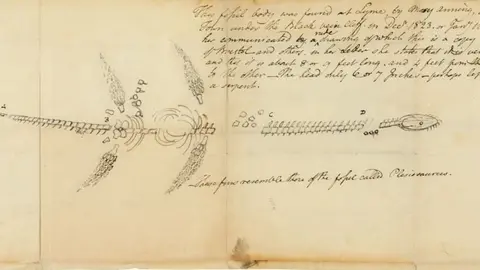 This fossil body was found at Lyme, by Mary Anning,
Town under the Black ven Cliff in Decr 1823. or Jany
has communicated by a rude drawing of which this is a copy
of Bristol and others, in her letter she states that
and this it is about 8 or 9 feet long, and 4 feet from
to the other – The head only 6 or 7 Inches – perhaps
a serpent.
A
D
– These fins resemble those of the fossil called Plesiosaurus.